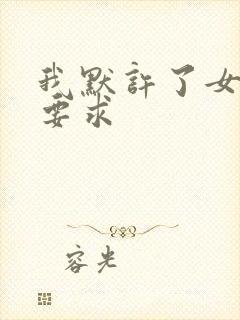 我默許了女
要求
容光